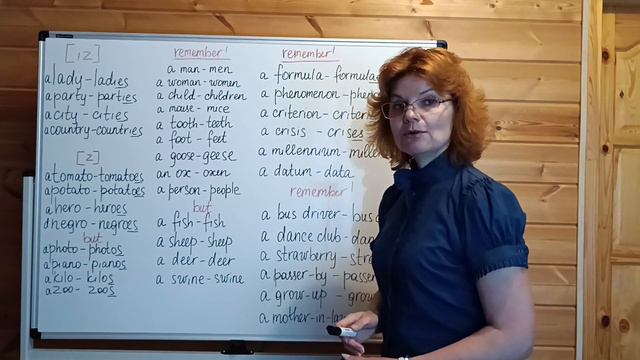 [ız]
a lady - ladies
a party - parties
a city - cities
a country - countries
[z]
a tomato - tomatoes
a potato - potatoes
a hero - heroes
a negro - negroes
but
a photo - photos
a piano - pianos
a kilo - kilos
a zoo - zoos
remember!
a man - men
a woman - women
a child - children
a mouse - mice
a tooth - teeth
a foot - feet
a goose - geese
an ox - oxen
a person - people
but
a fish - fish
a sheep - sheep
a deer - deer
a swine - swine
remember!
a formula - formulas
a phenomenon -
a criterion -
a crisis - crises
a millennium -
a datum - data
remember!
a bus driver - bus
a dance club -
a strawberry -
a passer-by -
a grow-up -
a mother-in-law